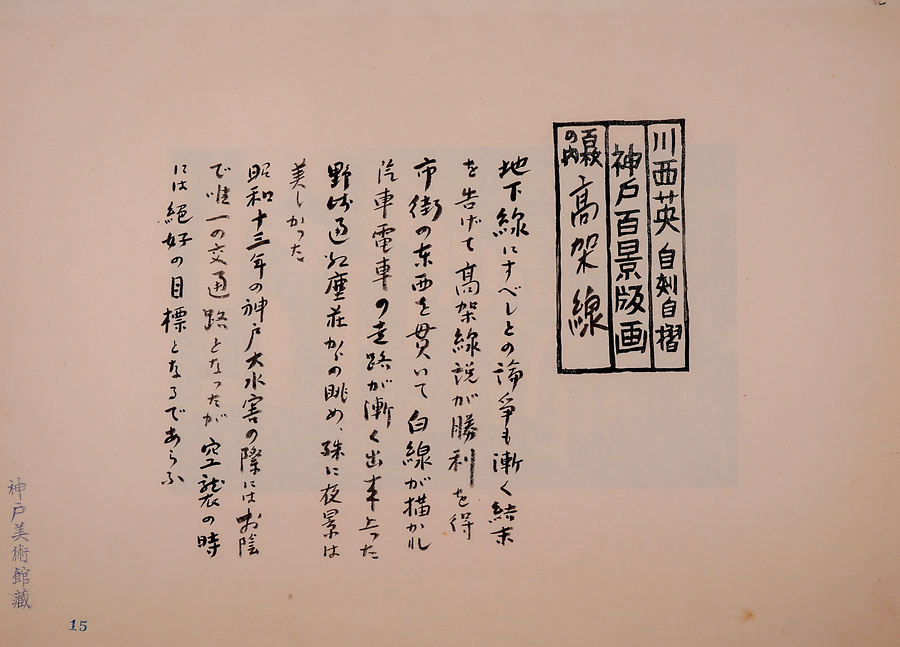 川西英 自刻自摺
神戸百景版画
百枚の内 高架線
地下線にすべしとの論爭も漸く結末
を告げて高架線説が勝利を得
市街の东西を貫いて白線が描かれ
汽車電車の走路が漸く出来上った
野崎通红塵荘からの眺め、殊に夜景は
美しかった
昭和十三年の神戸大水害の際にはお陰
で唯一の交通路となったが空襲の時
には絕好の目標となるであらふ
神戸美術館藏
15